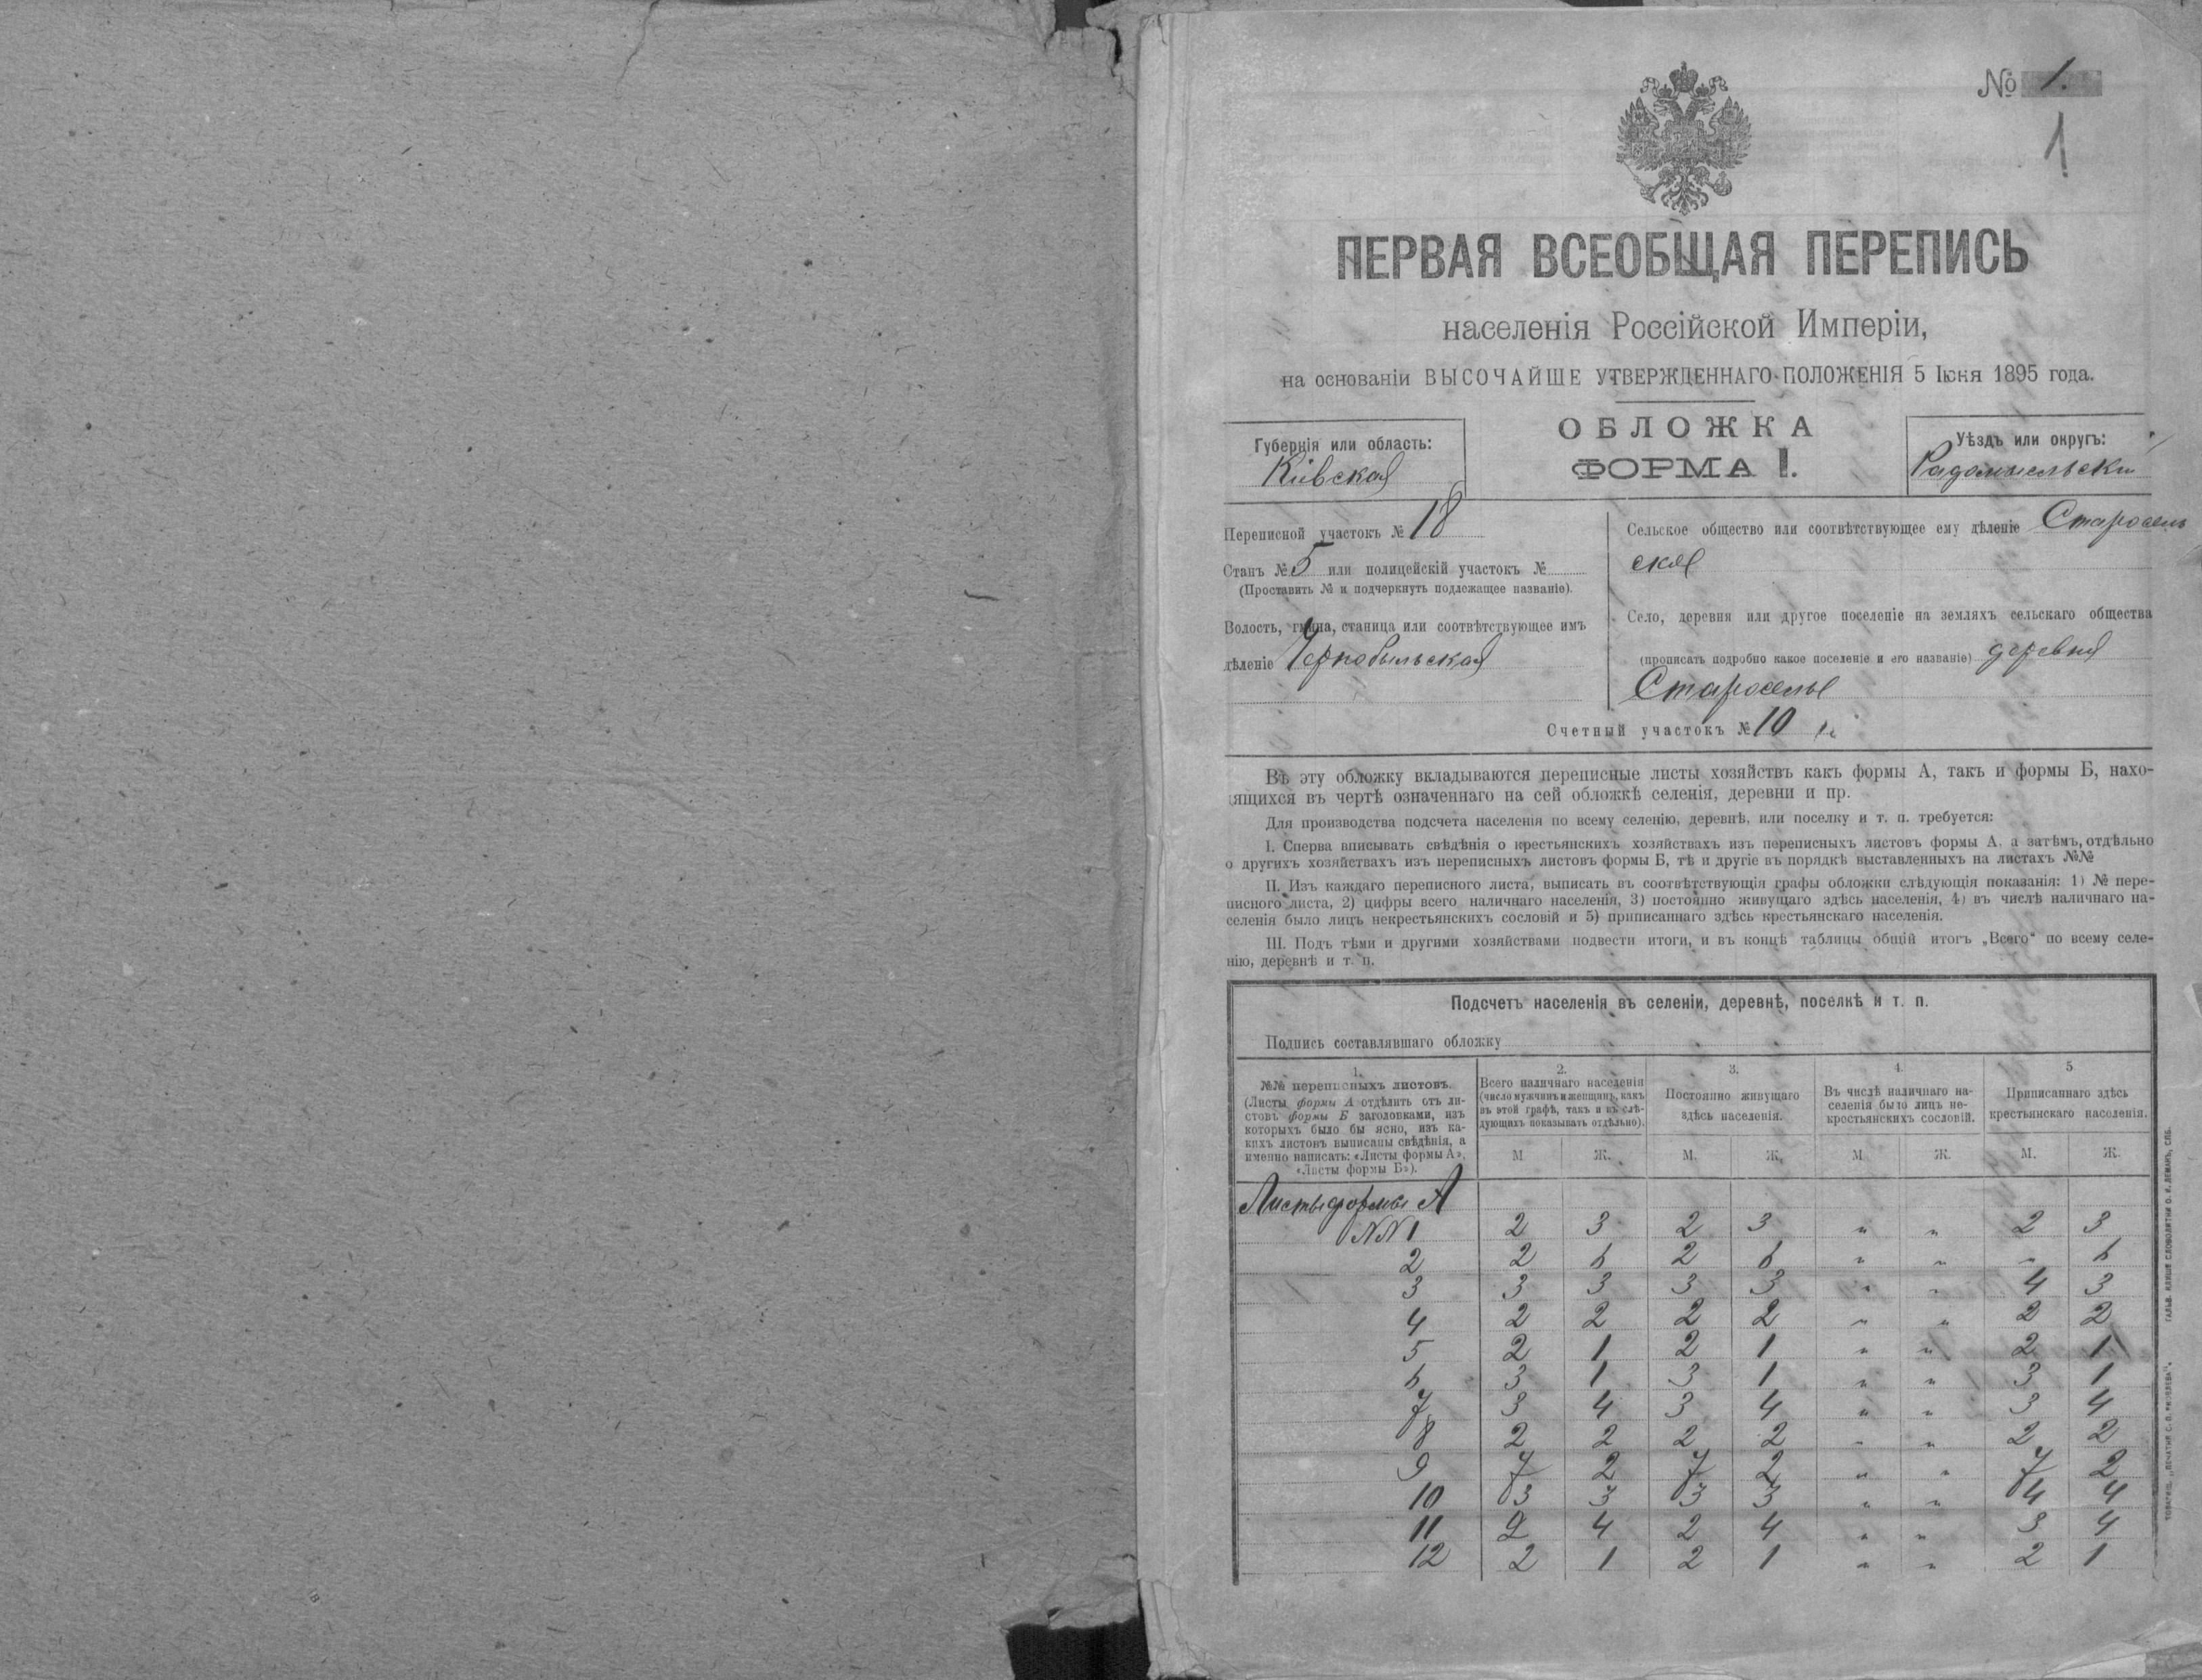 № 1.
1
ПЕРВАЯ ВСЕОБЩАЯ ПЕРЕПИСЬ
населенія Россійской Имперіи,
на основаніи ВЫСОЧАЙШЕ УТВЕРЖДЕННАГО ПОЛОЖЕНІЯ 5 Іюня 1895 года.
ОБЛОЖКА
ФОРМА I.
Губернія или область:
Кіевская
Уѣздъ или округъ:
Радомысльскій
Переписной участокъ № 18
Станъ № 5 или полицейскій участокъ №
(Проставить № и подчеркнуть подлежащее названіе).
Волость, гмина, станица или соотвѣтствующее имъ
дѣленіе Чернобыльская
Сельское общество или соотвѣтствующее ему дѣленіе Старосель
ское
Село, деревня или другое поселеніе на земляхъ сельскаго общества
(прописать подробно какое поселеніе и его названіе) деревня
Староселье
Счетный участокъ № 10
Въ эту обложку вкладываются переписные листы хозяйствъ какъ формы А, такъ и формы Б, нахо-
дящихся въ чертѣ означеннаго на сей обложкѣ селенія, деревни и пр.
Для производства подсчета населенія по всему селенію, деревнѣ, или поселку и т. п. требуется:
I. Сперва вписывать свѣдѣнія о крестьянскихъ хозяйствахъ изъ переписныхъ листовъ формы А, а затѣмъ, отдѣльно
о другихъ хозяйствахъ изъ переписныхъ листовъ формы Б, тѣ и другіе въ порядкѣ выставленныхъ на листахъ №№
II. Изъ каждаго переписного листа, выписать въ соотвѣтствующія графы обложки слѣдующія показанія: 1) № пере-
писного листа, 2) цифры всего наличнаго населенія, 3) постоянно живущаго здѣсь населенія, 4) въ числѣ наличнаго на-
селенія было лицъ некрестьянскихъ сословій и 5) приписаннаго здѣсь крестьянскаго населенія.
III. Подъ тѣми и другими хозяйствами подвести итоги, и въ концѣ таблицы общій итогъ „Всего“ по всему селе-
нію, деревнѣ и т. п.
Подсчетъ населенія въ селеніи, деревнѣ, поселкѣ и т. п.
Подпись составлявшаго обложку
1.
№№ переписныхъ листовъ.
(Листы формы А отдѣлить отъ ли-
стовъ формы Б заголовками, изъ
которыхъ было бы ясно, изъ ка-
кихъ листовъ выписаны свѣдѣнія, а
именно написать: «Листы формы А»,
«Листы формы Б»).
2.
Всего наличнаго населенія
(число мужчинъ и женщинъ, какъ
въ этой графѣ, такъ и въ слѣ-
дующихъ показывать отдѣльно).
3.
Постоянно живущаго
здѣсь населенія.
4.
Въ числѣ наличнаго на-
селенія было лицъ не-
крестьянскихъ сословій.
5
Приписаннаго здѣсь
крестьянскаго населенія.
М Ж. М. Ж. М Ж. М. Ж.
Листы формы А
№№ 1 2 3 2 3 " " 2 3
2 2 6 2 6 " " " 6
3 3 3 3 3 " " 4 3
4 2 2 2 2 " " 2 2
5 2 1 2 1 " " 2 1
6 3 1 3 1 " " 3 1
7 3 4 3 4 " " 3 4
8 2 2 2 2 " " 2 2
9 7 2 7 2 " " 7 2
10 3 3 3 3 " " 4 4
11 2 4 2 4 " " 3 4
12 2 1 2 1 " " 2 1